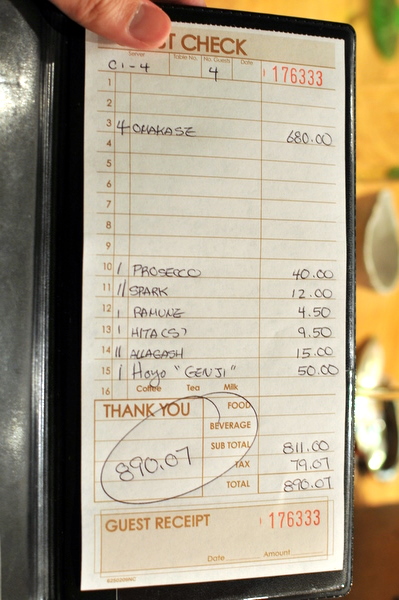 ST CHECK
Server Table No. No. Guests Date
C1-4 4 176333
1
2
3 4 OMAKASE 680.00
4
5
6
7
8
9
10 1 PROSECCO 40.00
11 11 SPARK 12.00
12 1 RAMUNE 4.50
13 1 HITA(S) 9.50
14 11 ALLAGASH 15.00
15 1 Hoyo "GENJI" 50.00
16 Coffee Tea Milk
THANK YOU FOOD
BEVERAGE
SUB TOTAL 811.00
890.07 TAX 79.07
TOTAL 890.07
GUEST RECEIPT 176333
Date Amount